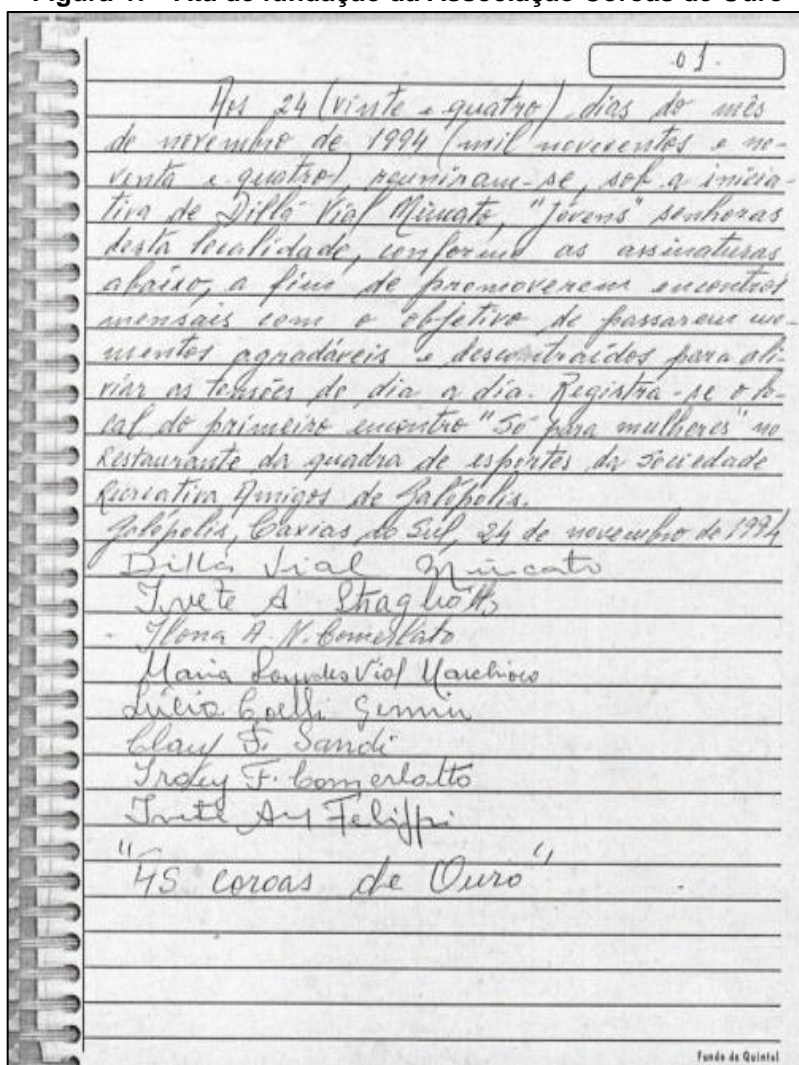 -01-
Aos 24 (vinte e quatro) dias do mês
de novembro de 1994 (mil novecentos e no-
venta e quatro), reuniram-se, sob a inicia-
tiva de Dilla Vial Mincato, "jovens" senhoras
desta localidade, conforme as assinaturas
abaixo, a fim de promoverem encontros
mensais com o objetivo de passarem mo-
mentos agradáveis e descontraídos para ali-
viar as tensões do dia a dia. Registra-se o lo-
cal do primeiro encontro "Só para mulheres" no
Restaurante da quadra de esportes da Sociedade
Recreativa Amigos de Galópolis.
Galópolis, Caxias do Sul, 24 de novembro de 1994
Dilla Vial Mincato
Ivete A Stragliotto
Ilona A. N. Comerlato
Maria Lourdes Vial
Lúcia
Clary F. Sandi
Iracy F. Comerlatto
Felippi
"As coroas de Ouro"
Fundo de Quintal